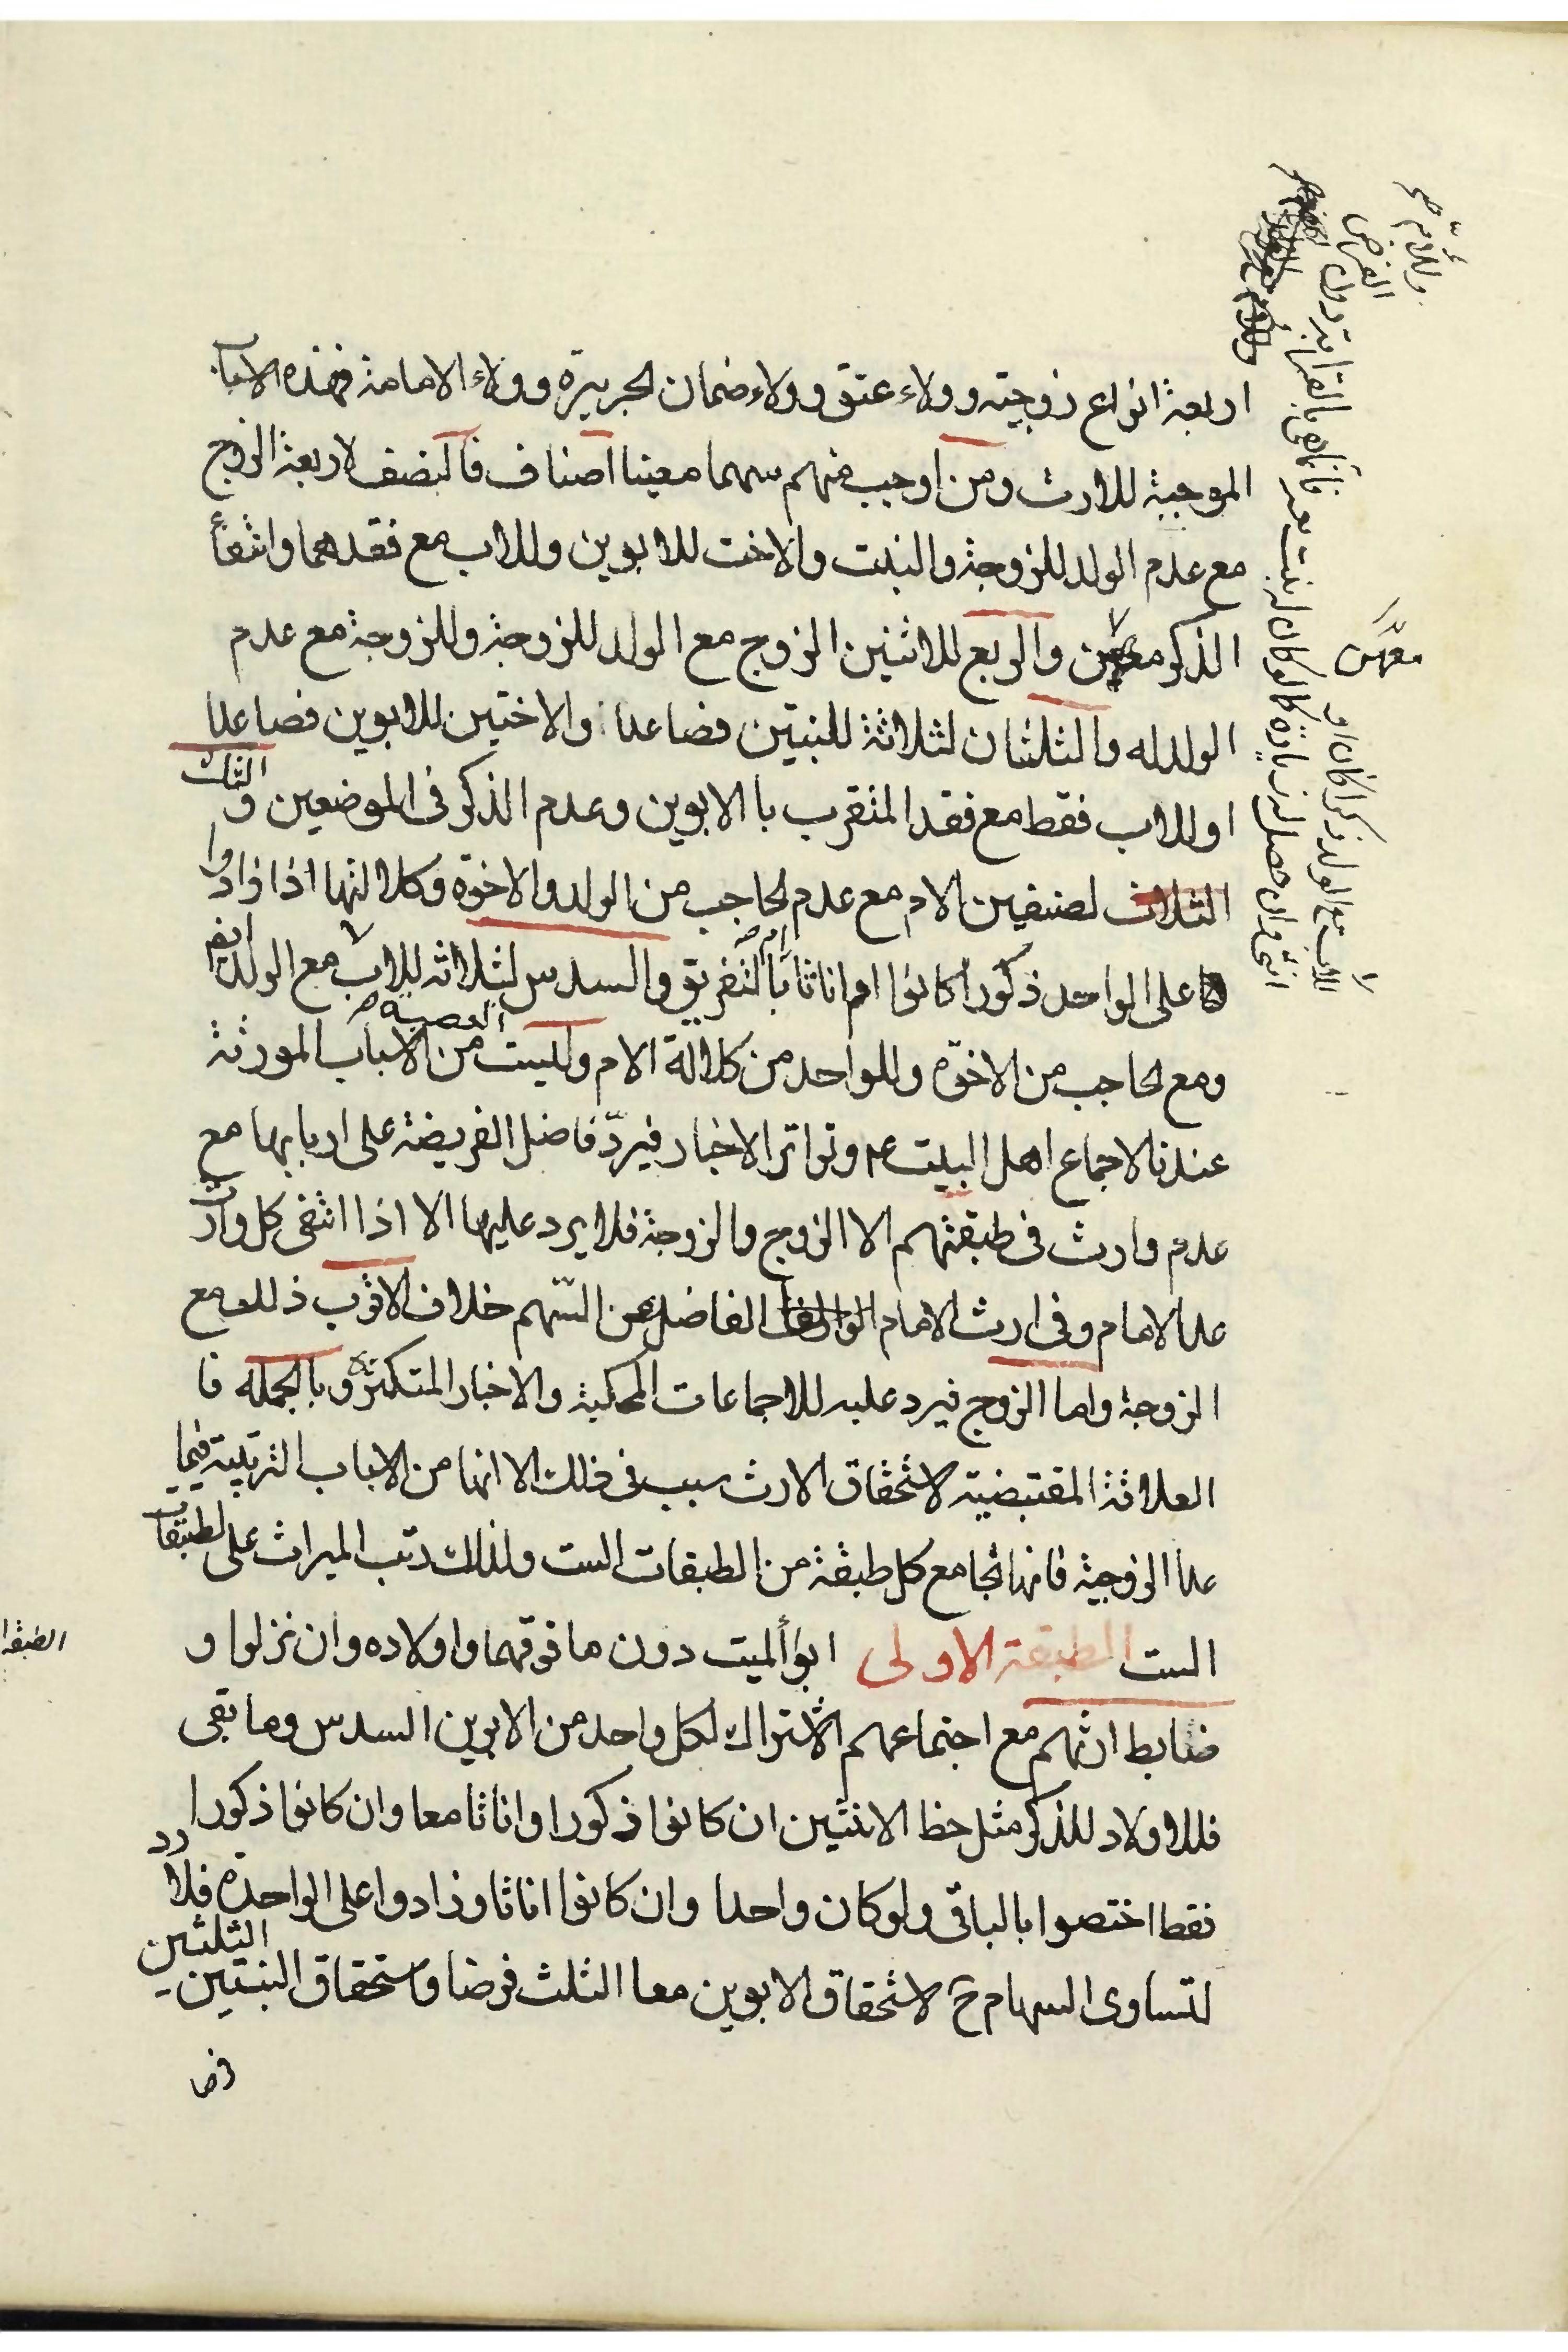 اربعة انواع زوجيته وولاء عتق وولاء ضمان الجريرة وولاء الامامة فهذه الاسباب
الموجبة للارث ومن اوجب منهم سهما معينا اصناف فالنصف لاربعة الزوج
مع عدم الولد للزوجة والبنت والاخت للابوين وللاب مع فقدهما وانتفأ
الذكر معهن والربع للاثنين الزوج مع الولد للزوجة وللزوجة مع عدم
الولد له والثلثان لثلاثة للبنتين فصاعدا والاختين للابوين فصاعدا
او للاب فقط مع فقد المتقرب بالابوين وعدم الذكر فى الموضعين و الثلث
لصنفين الام مع عدم الحاجب من الولد والاخوة وكلالتها اذا زادوا
على الواحد ذكورا كانوا ام اناثا ام بالتفريق والسدس لثلاثه للاب مع الولد
ومع الحاجب من الاخوّة وللواحد من كلالة الام وليست العصبة من الاسباب المورثة
عندنا لاجماع اهل البيت ع وتواتر الاخبار فيردّ فاضل الفريضة على اربابها مع
عدم وارث فى طبقتهم الا الزوج والزوجة فلا يرد عليها الا اذا انتفى كل وارث
عدا الامام وفى ارث الامام الفاضل عن السّهم خلاف الاقرب ذلك مع
الزوجة واما الزوج فيرد عليه للاجماعات المحكية والاخبار المتكثرة وبالجملة فا
العلاقة المقتضية لاستحقاق الارث سبب فى ذلك الا انها من الاسباب الترتيبية فيما
عدا الزوجية فانها تجامع كل طبقة من الطبقات الست ولذلك رتب الميراث على الطبقات
الست الطبقة الاولى ابوأ لميت دون ما فوقهما واولاده وان نزلوا و
ضابط ارثهم مع اجتماعهم الاشتراك لكل واحد من الابوين السدس وما بقى
فللاولاد للذكر مثل حظ الانثيين ان كانوا ذكورا واناثا معا وان كانوا ذكورا
فقط اختصوا بالباقى ولو كان واحدا وان كانوا اناثا وزادوا على الواحدة فلا رد
لتساوى السهام ح لاستحقاق الابوين معا الثلث فرضا واستحقاق البنتين الثلثين
فرضا
وللام
الفرض
معهن